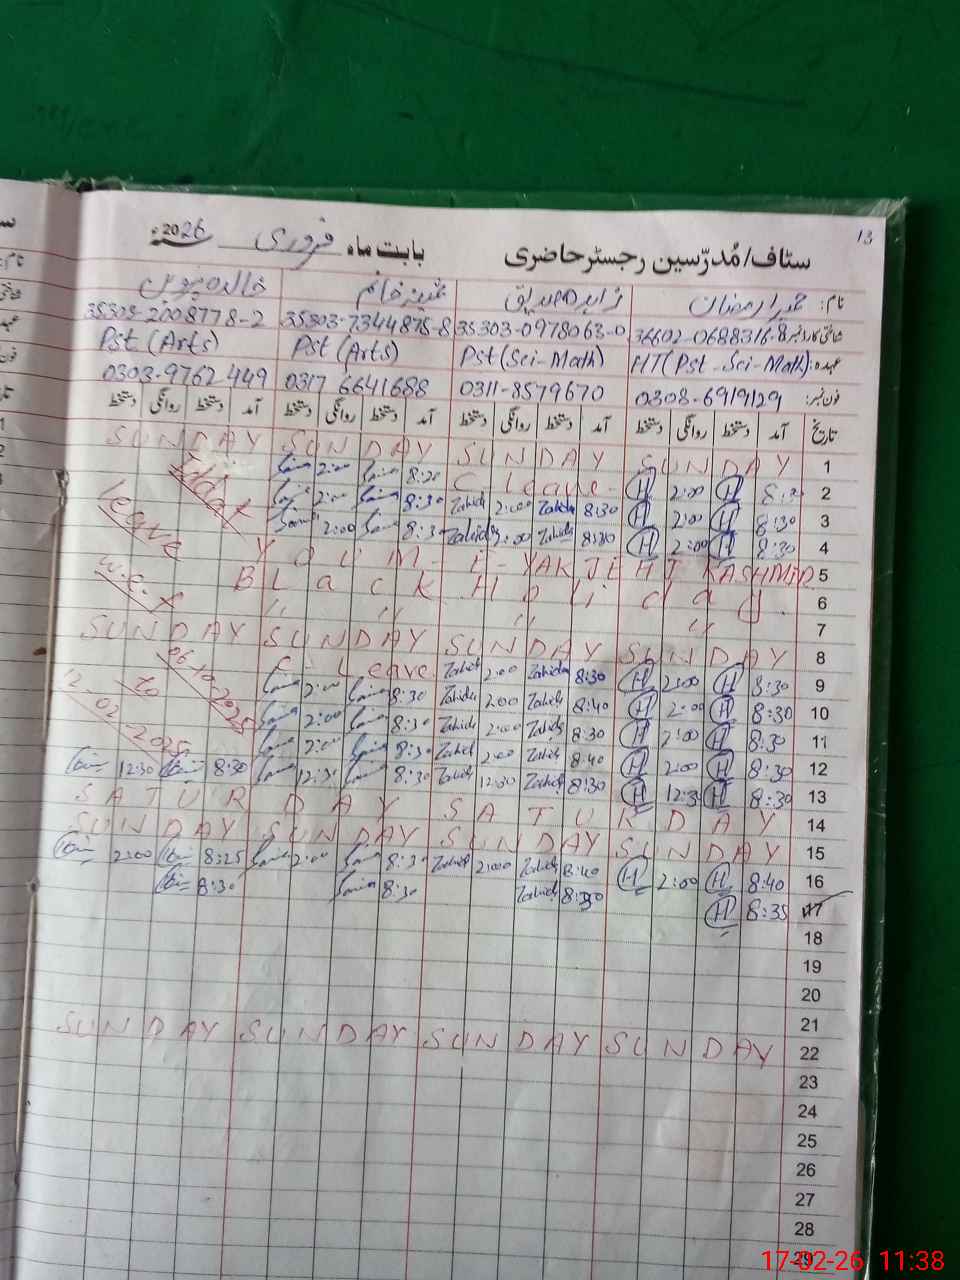 13
سٹاف/مُدرّسین رجسٹر حاضری بابت ماہ فروری 2026ء
نام: محمد رمضان زاہدہ صدیق ثمینہ خانم خالدہ پروین
شناختی کارڈ نمبر: 36602-0688316-8 35303-0978063-0 35303-7344878-8 35303-2008778-2
عہدہ: HT(Pst-Sci-Math) Pst(Sci-Math) Pst(Arts) Pst(Arts)
فون نمبر: 0308-6919129 0311-8579670 0317 6641688 0303-9762449
تاریخ آمد دستخط روانگی دستخط آمد دستخط روانگی دستخط آمد دستخط روانگی دستخط آمد دستخط روانگی دستخط
1 SUNDAY SUNDAY SUNDAY SUNDAY
2 H 2:00 H C. leave 8:20 2:00
3 8:30 H 2:00 H 8:30 Zahida 2:00 Zahida 8:30 2:00
4 8:30 H 2:00 H 8:30 Zahida 2:00 Zahida 8:30 2:00
Iddat Leave w.e.f 06-10-2025 to 12-02-2025
5 YOUM-E-YAKJEHTI KASHMIR
6 Black Holiday
7 " " " "
8 SUNDAY SUNDAY SUNDAY SUNDAY
9 8:30 H 2:00 H 8:30 Zahida 2:00 Zahida C. Leave
10 8:30 H 2:00 H 8:40 Zahida 2:00 Zahida 8:30 2:00
11 8:30 H 2:00 H 8:30 Zahida 2:00 Zahida 8:30 2:00
12 8:30 H 2:00 H 8:40 Zahida 2:00 Zahida 8:30 2:00
13 8:30 H 12:30 H 8:30 Zahida 12:30 Zahida 8:30 12:30 8:30 12:30
14 SATURDAY SATURDAY
15 SUNDAY SUNDAY SUNDAY SUNDAY
16 8:40 H 2:00 H 8:40 Zahida 2:00 Zahida 8:30 2:00 8:25 2:00
17 8:35 H 8:30 Zahida 8:30 8:30
18
19
20
21
22 SUNDAY SUNDAY SUNDAY SUNDAY
23
24
25
26
27
28
29
17-02-26 11:38